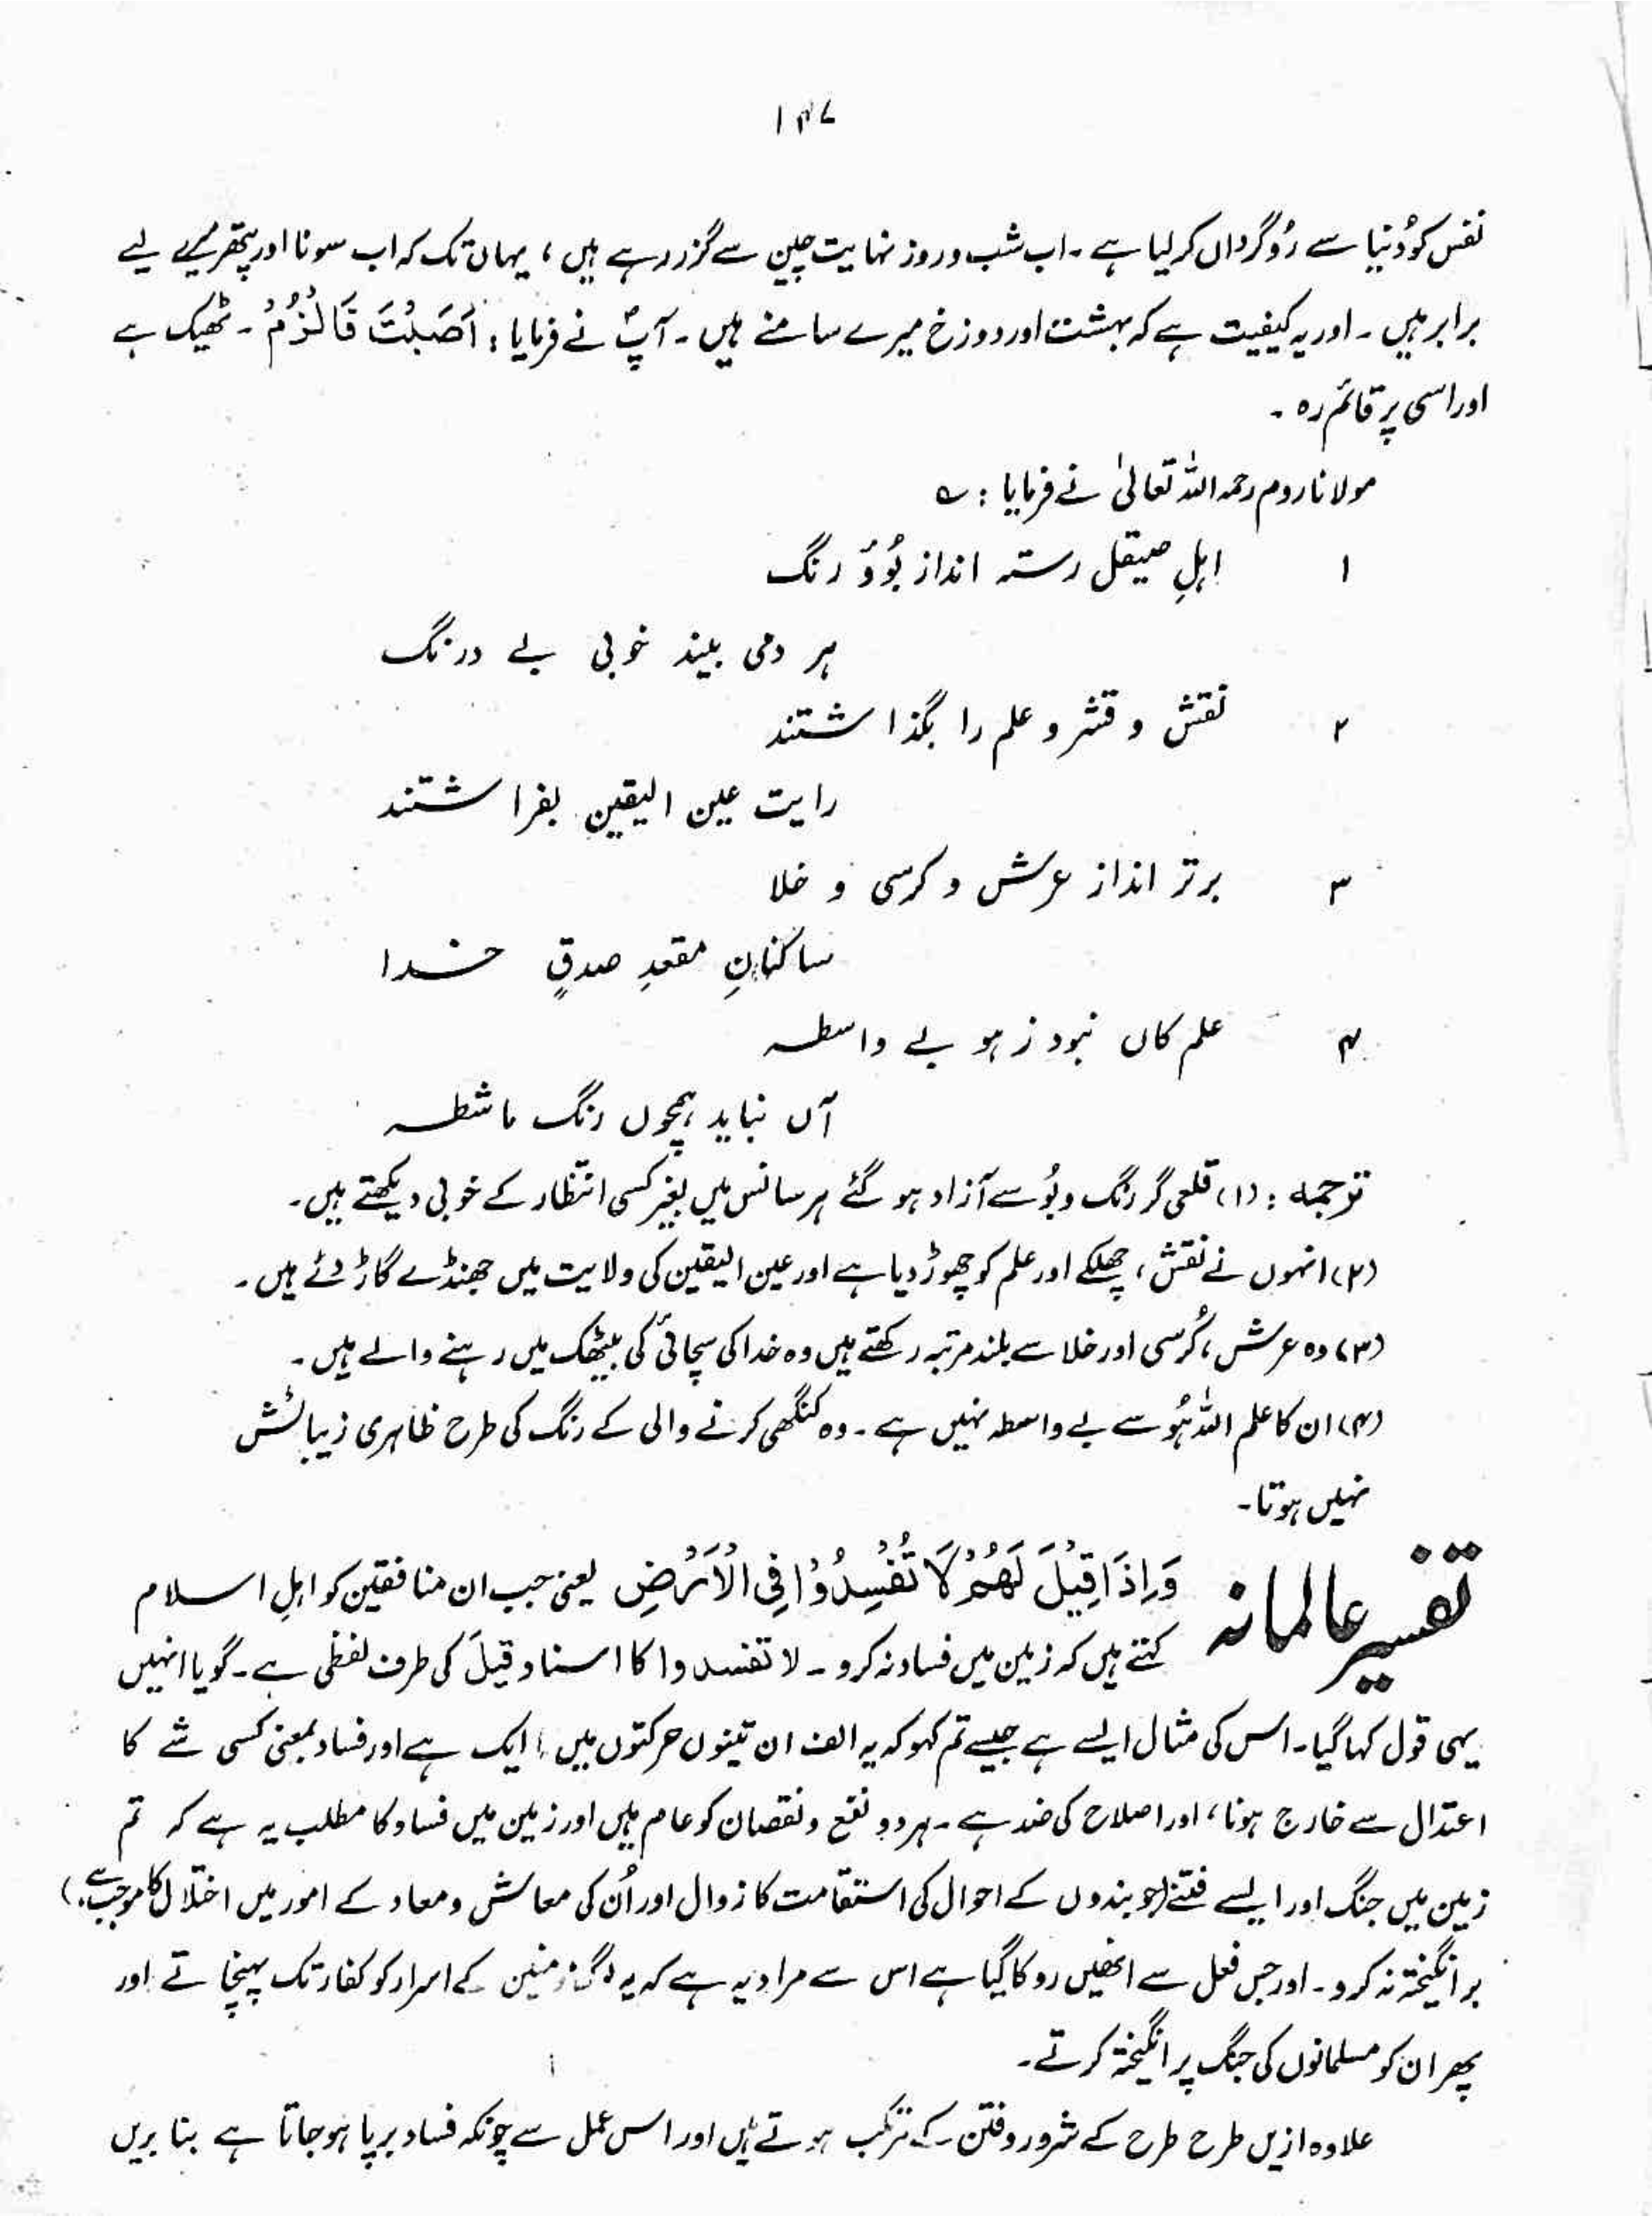 ۱۴۷
نفس کو دُنیا سے رُوگرداں کر لیا ہے ۔ اب شب و روز نہایت چین سے گزر رہے ہیں ، یہاں تک کہ اب سونا اور پتھر میرے لیے
برابر ہیں ۔ اور یہ کیفیت ہے کہ بہشت اور دوزخ میرے سامنے ہیں ۔ آپؐ نے فرمایا : اَصَبْتَ فَالْزُمْ ۔ ٹھیک ہے
اور اسی پر قائم رہ ۔
مولانا روم رحمہ اللہ تعالیٰ نے فرمایا : ؎
۱ اہلِ صیقل رستہ انداز بُوؤ رنگ
ہر دمی بیند خوبی بے درنگ
۲ نقش و قشر و علم را بگذاشتند
رایت عین الیقین بفراشتند
۳ برتر انداز عرش و کرسی و خلا
ساکنانِ مقعدِ صدقِ خدا
۴ علم کاں نبود ز ہو بے واسطہ
آں نباید ہمچوں رنگ ماشطہ
ترجمہ : (۱) قلعی گر رنگ و بُو سے آزاد ہو گئے ہر سانس میں بغیر کسی انتظار کے خوبی دیکھتے ہیں ۔
(۲) انہوں نے نقش ، چھلکے اور علم کو چھوڑ دیا ہے اور عین الیقین کی ولایت میں جھنڈے گاڑ دئے ہیں ۔
(۳) وہ عرش ، کُرسی اور خلا سے بلند مرتبہ رکھتے ہیں وہ خدا کی سچائی کی بیٹھک میں رہنے والے ہیں ۔
(۴) ان کا علم اللہ ہُو سے بے واسطہ نہیں ہے ۔ وہ کنگھی کرنے والی کے رنگ کی طرح ظاہری زیبائش
نہیں ہوتا ۔
تفسیر عالمانہ وَاِذَا قِيْلَ لَهُمْ لَا تُفْسِدُوْا فِی الْاَرْضِ یعنی جب ان منافقین کو اہلِ اسلام
کہتے ہیں کہ زمین میں فساد نہ کرو ۔ لا تفسدوا کا اسناد قیلَ کی طرف لفظی ہے ۔ گویا انہیں
یہی قول کہا گیا ۔ اس کی مثال ایسے ہے جیسے تم کہو کہ یہ الف ان تینوں حرکتوں میں ایک ہے اور فساد بمعنی کسی شے کا
اعتدال سے خارج ہونا ، اور اصلاح کی ضد ہے ۔ ہر دو نفع و نقصان کو عام ہیں اور زمین میں فساد کا مطلب یہ ہے کہ تم
زمین میں جنگ اور ایسے فتنے (جو بندوں کے احوال کی استقامت کا زوال اور اُن کی معاش و معاد کے امور میں اختلال کا موجب ہے ۔)
برانگیختہ نہ کرو ۔ اور جس فعل سے انھیں روکا گیا ہے اس سے مراد یہ ہے کہ یہ لوگ مومنین کے اسرار کو کفار تک پہنچاتے اور
پھر ان کو مسلمانوں کی جنگ پر انگیختہ کرتے ۔
علاوہ ازیں طرح طرح کے شرور و فتن کے مرتکب ہوتے ہیں اور اس عمل سے چونکہ فساد برپا ہو جاتا ہے بنا بریں